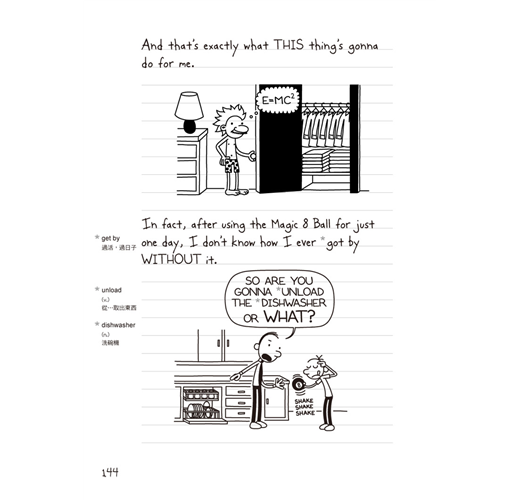 And that's exactly what THIS thing's gonna
do for me.
E=MC²
In fact, after using the Magic 8 Ball for just
one day, I don't know how I ever *got by
WITHOUT it.
* get by
過活，過日子
SO ARE YOU
GONNA *UNLOAD
THE *DISHWASHER
OR WHAT?
* unload
(v.)
從…取出東西
* dishwasher
(n.)
洗碗機
SHAKE
SHAKE
SHAKE
144